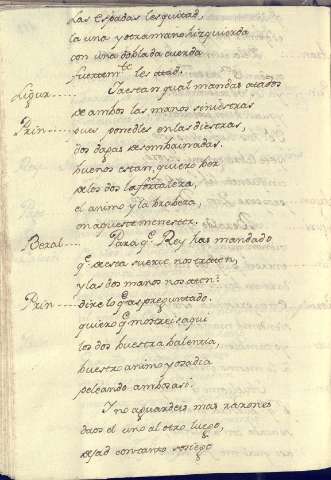 Las espadas les quitad,
la una y otra mano hizquierda
con una doblada cuerda
fuertem.te les atad.
Ligur..... Ya estan qual mandas atados
de ambos las manos siniestras
Prin..... pues ponedles en las diestras,
dos dagas desembainadas.
buenos estan, quiero
de los dos la fortaleza,
el animo y la brabeza,
en aqueste menester.
Bezal..... Para q.e Rey has mandado
q.e de esta suerte nos traten,
y las dos manos nos aten:
Prin..... dire lo q.e as preguntado.
quiero q.e mostreis aqui
los dos buestra balentia,
buestro animo y osadia
peleando ambos asi.
Y no aguardeis mas razones
daos el uno al otro luego,
dejad con tanto sosiego